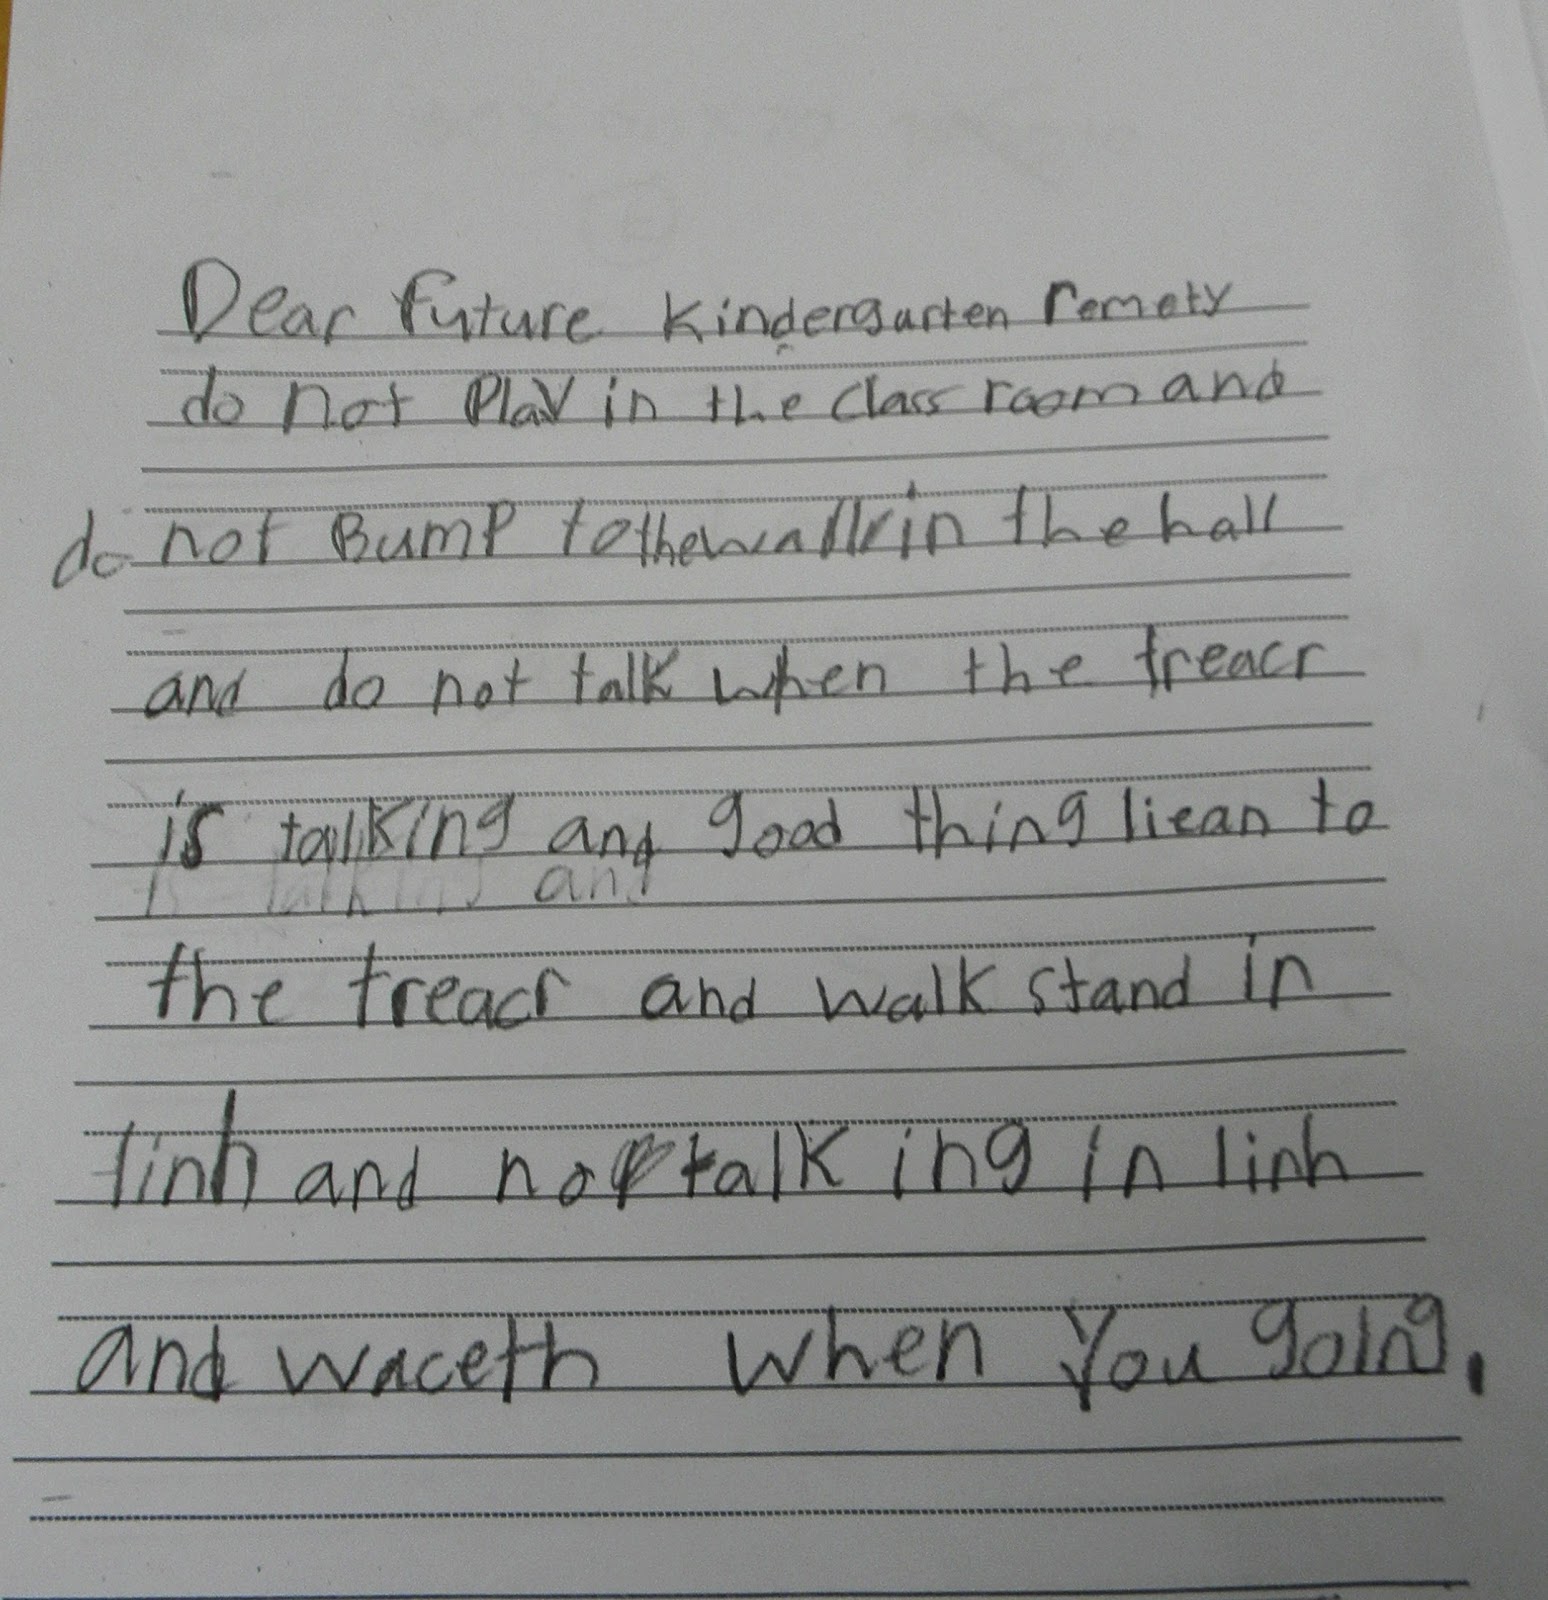 Dear future Kindergarten remety
do not Play in the class room and
do not Bump to the wall in the hall
and do not talk when the treacr
is talking and good thing liean to
the treacr and walk stand in
linh and not talk ing in linh
and waceth when you going.